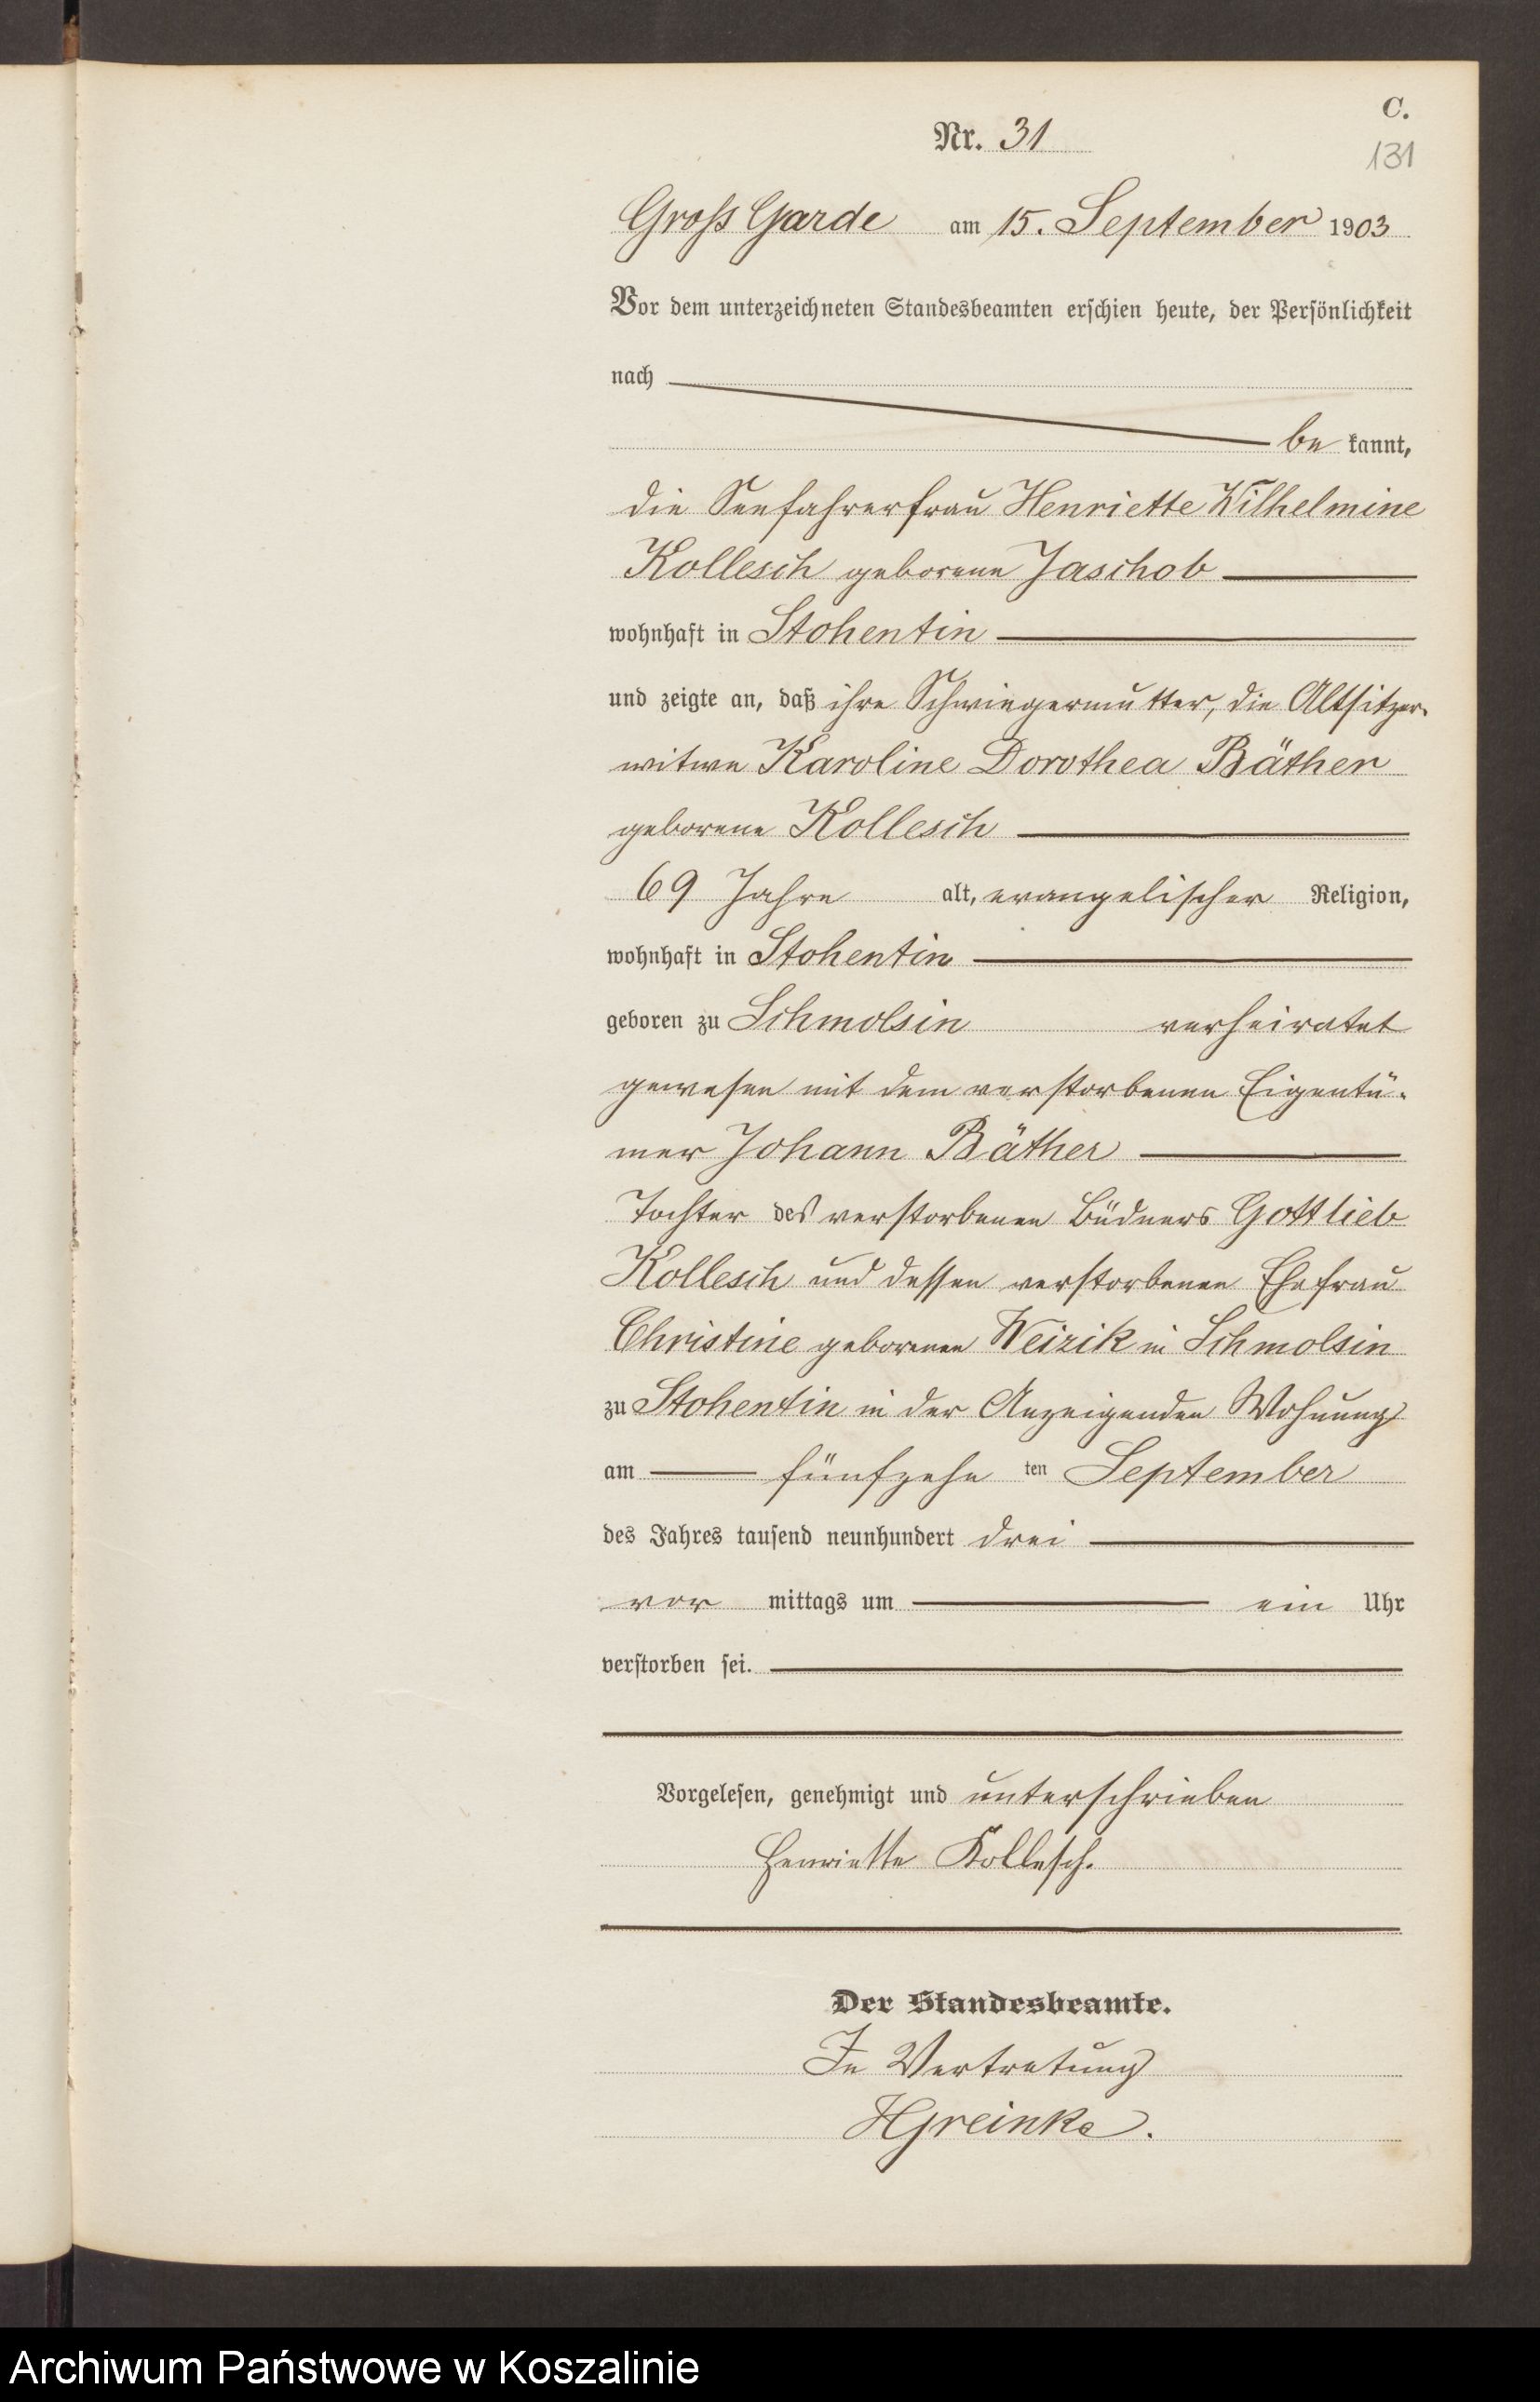 C.
Nr. 31
131
Groß Garde am 15. September 1903
Vor dem unterzeichneten Standesbeamten erschien heute, der Persönlichkeit
nach
be kannt,
die Seefahrerfrau Henriette Wilhelmine
Kollesch geborene Jaschob
wohnhaft in Stohentin
und zeigte an, daß ihre Schwiegermutter, die Altsitzer-
witwe Karoline Dorothea Bäther
geborene Kollesch
69 Jahre alt, evangelischer Religion,
wohnhaft in Stohentin
geboren zu Schmolsin verheiratet
gewesen mit dem verstorbenen Eigentü-
mer Johann Bäther
Tochter des verstorbenen Büdners Gottlieb
Kollesch und dessen verstorbenen Ehefrau
Christine geborenen Weizik in Schmolsin
zu Stohentin in der Anzeigenden Wohnung
am fünfzehn ten September
des Jahres tausend neunhundert drei
vor mittags um ein Uhr
verstorben sei.
Vorgelesen, genehmigt und unterschrieben
Henriette Kollesch.
Der Standesbeamte.
In Vertretung
HGreinke.
Archiwum Państwowe w Koszalinie